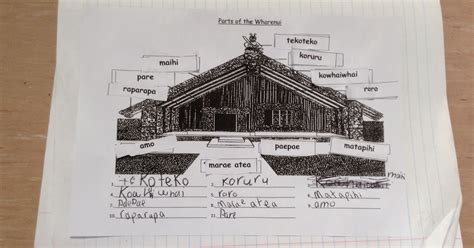 Parts of the Wharenui
tekoteko
koruru
maihi
kowhaiwhai
pare
roro
raparapa
amo
paepae
matapihi
marae atea
1. teKoteko
2. Koruru
3. maihi
5. roro
6. Matapihi
8. Marae atea
9. amo
10. raparapa
11. Pare